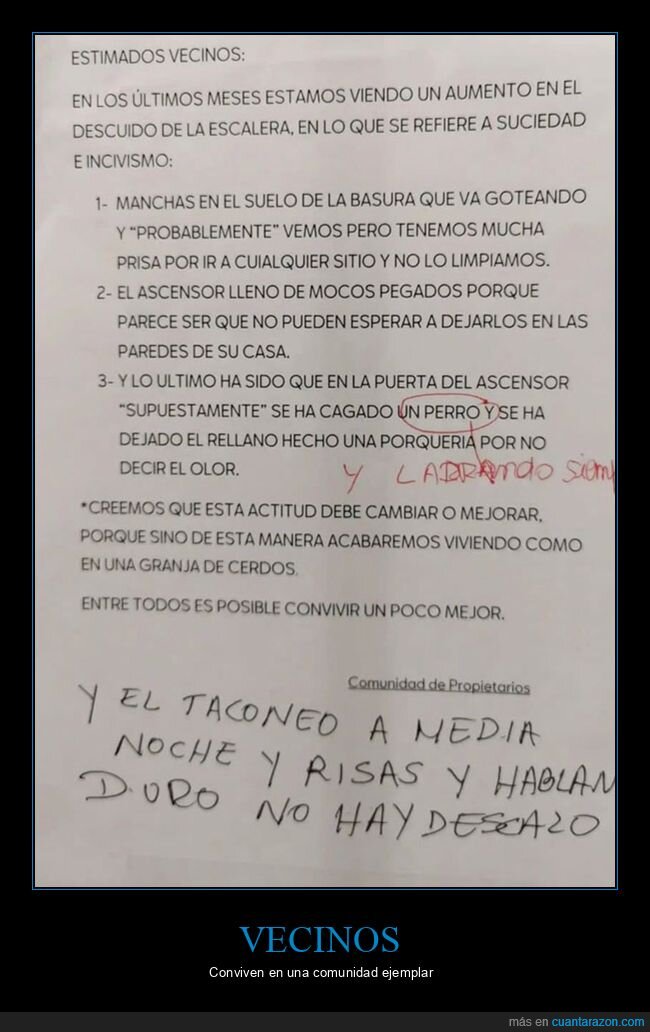 ESTIMADOS VECINOS:
EN LOS ÚLTIMOS MESES ESTAMOS VIENDO UN AUMENTO EN EL
DESCUIDO DE LA ESCALERA, EN LO QUE SE REFIERE A SUCIEDAD
E INCIVISMO:
1- MANCHAS EN EL SUELO DE LA BASURA QUE VA GOTEANDO
Y “PROBABLEMENTE” VEMOS PERO TENEMOS MUCHA
PRISA POR IR A CUIALQUIER SITIO Y NO LO LIMPIAMOS.
2- EL ASCENSOR LLENO DE MOCOS PEGADOS PORQUE
PARECE SER QUE NO PUEDEN ESPERAR A DEJARLOS EN LAS
PAREDES DE SU CASA.
3- Y LO ULTIMO HA SIDO QUE EN LA PUERTA DEL ASCENSOR
“SUPUESTAMENTE” SE HA CAGADO UN PERRO Y SE HA
DEJADO EL RELLANO HECHO UNA PORQUERIA POR NO
DECIR EL OLOR.
Y LADRANdo siem
*CREEMOS QUE ESTA ACTITUD DEBE CAMBIAR O MEJORAR,
PORQUE SINO DE ESTA MANERA ACABAREMOS VIVIENDO COMO
EN UNA GRANJA DE CERDOS.
ENTRE TODOS ES POSIBLE CONVIVIR UN POCO MEJOR.
Comunidad de Propietarios
Y EL TACONEO A MEDIA
NOCHE Y RISAS Y HABLAN
DURO NO HAY DESCAZO
VECINOS
Conviven en una comunidad ejemplar
más en cuantarazon.com